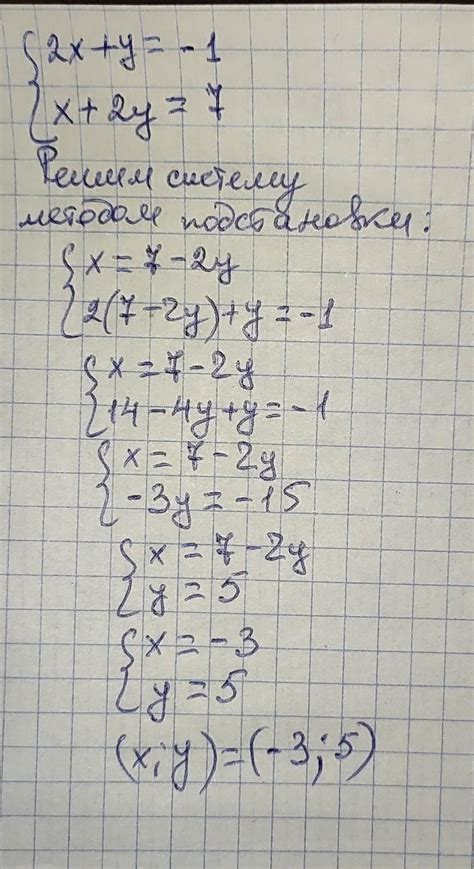 2x+y=-1
x+2y=7
Решим систему
методом подстановки:
x=7-2y
2(7-2y)+y=-1
x=7-2y
14-4y+y=-1
x=7-2y
-3y=-15
x=7-2y
y=5
x=-3
y=5
(x;y)=(-3;5)